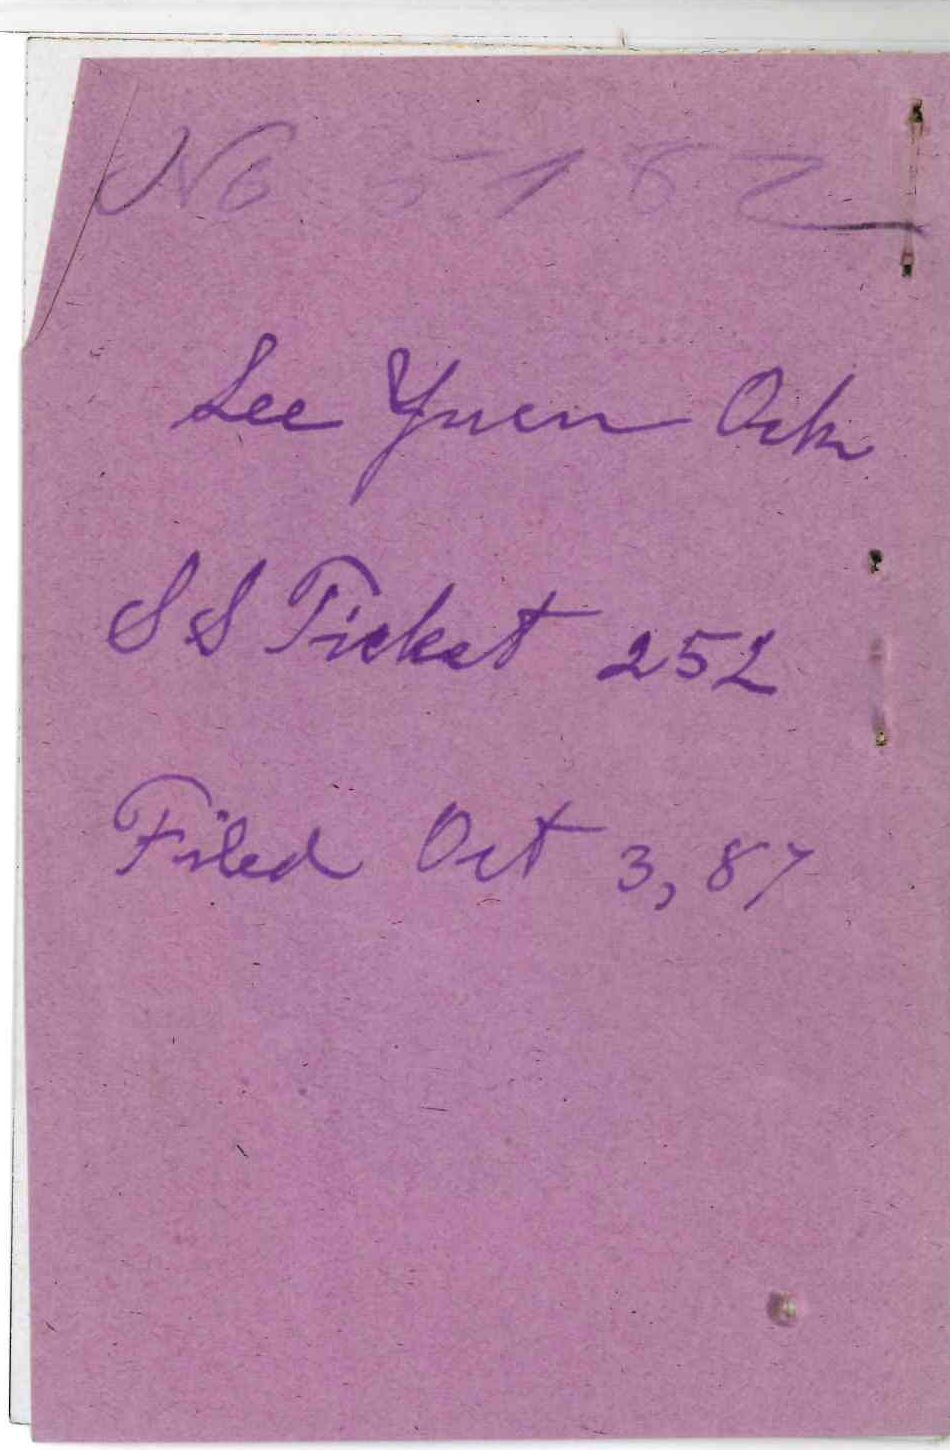 No 5182
See Yuen Ock
SS Ticket 252
Filed Oct 3, 87